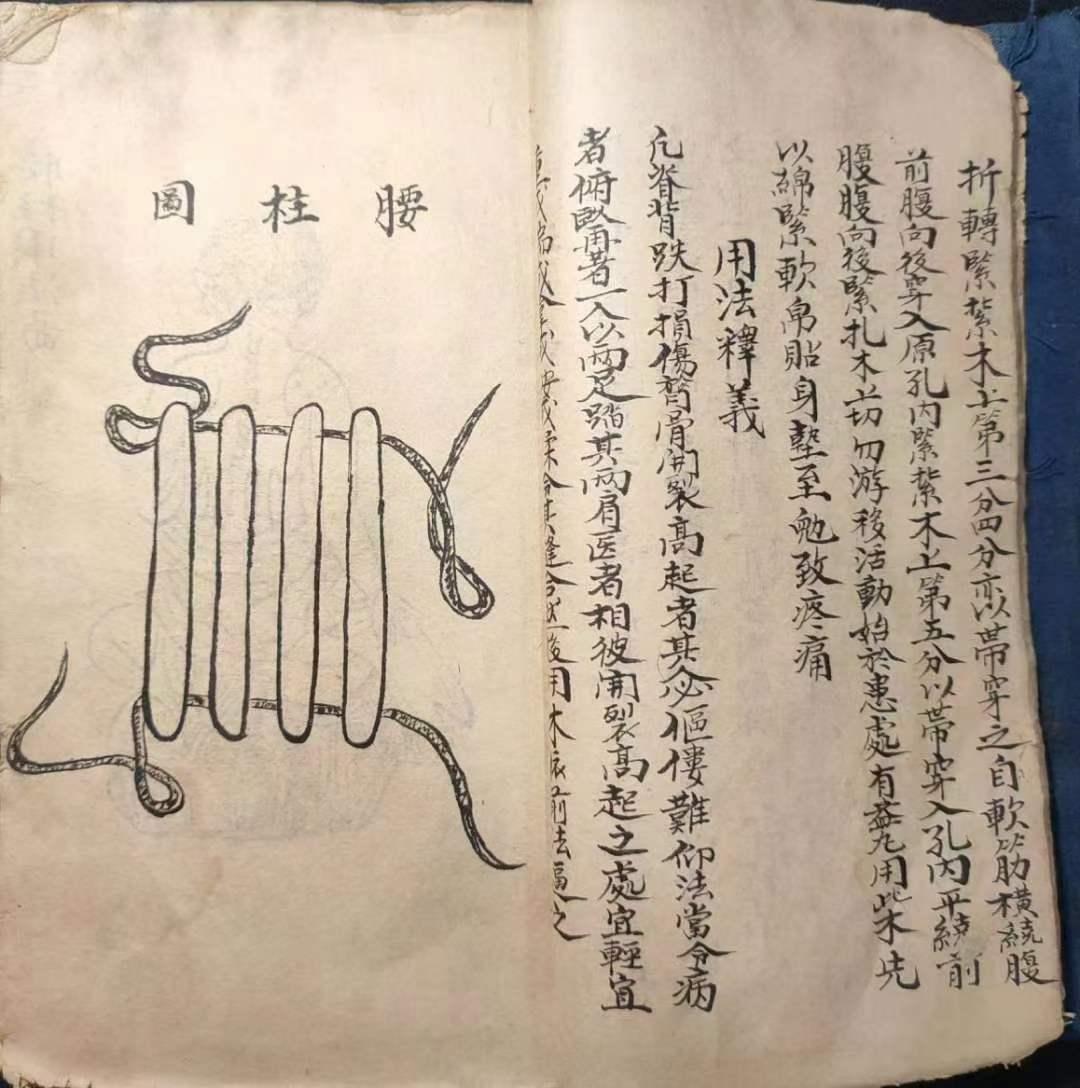 折轉緊紮木上第三分四分亦以帶穿之自軟筋橫繞腹
前腹向後穿入原孔內緊紮木上第五分以帶穿入孔內平繞前
腹腹向後緊扎木上切勿游移活動始於患處有益凡用此木先
以綿緊軟帛貼身墊至勉致疼痛
用法釋義
凡脊背跌打損傷膂骨開裂高起者其必傴僂難仰法當令病
者俯臥再著一人以兩足踏其兩肩医者相彼開裂高起之處宜輕宜
縫合然後用木依前法逼之
腰柱圖